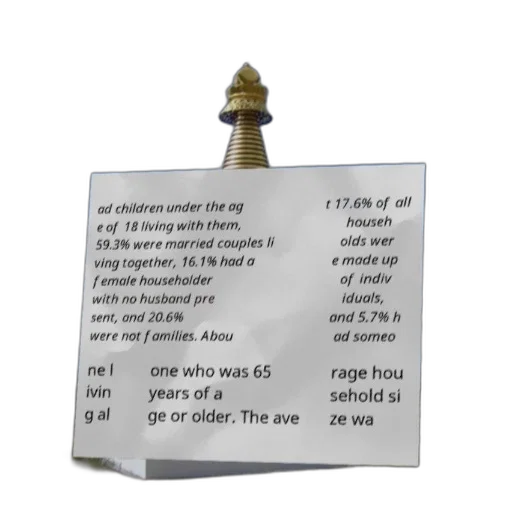 ad children under the ag
e of 18 living with them,
59.3% were married couples li
ving together, 16.1% had a
female householder
with no husband pre
sent, and 20.6%
were not families. Abou
t 17.6% of all
househ
olds wer
e made up
of indiv
iduals,
and 5.7% h
ad someo
ne l
ivin
g al
one who was 65
years of a
ge or older. The ave
rage hou
sehold si
ze wa